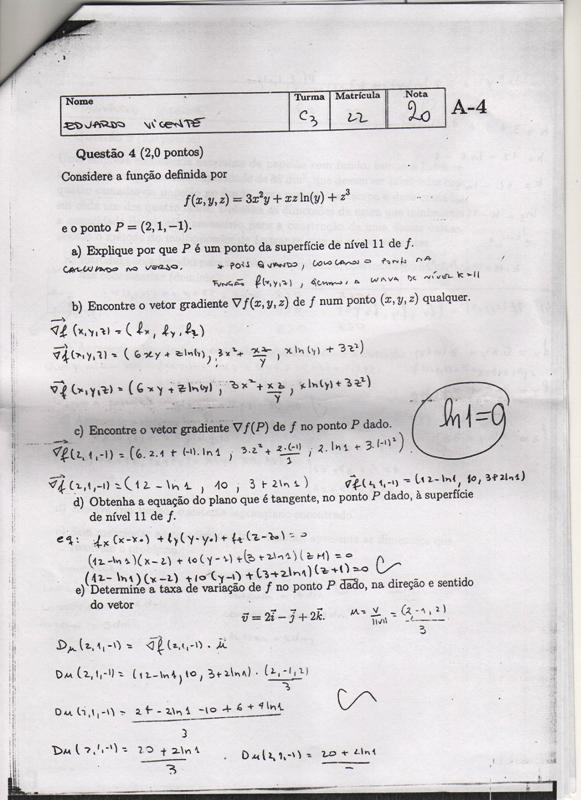 Nome Turma Matrícula Nota
EDUARDO VICENTE C3 22 20 A-4
Questão 4 (2,0 pontos)
Considere a função definida por
f(x, y, z) = 3x²y + xz ln(y) + z³
e o ponto P = (2, 1, −1).
a) Explique por que P é um ponto da superfície de nível 11 de f.
CALCULADO NO VERSO. * POIS QUANDO, COLOCAMOS O PONTO NA
FUNÇÃO f(x,y,z), ACHAMOS A CURVA DE NÍVEL K=11
b) Encontre o vetor gradiente ∇f(x, y, z) de f num ponto (x, y, z) qualquer.
∇f (x,y,z) = (fx, fy, fz)
∇f(x,y,z) = (6xy + z ln(y), 3x² + xz/y, x ln(y) + 3z²)
∇f(x,y,z) = (6xy + z ln(y), 3x² + xz/y, x ln(y) + 3z²)
ln 1 = 0
c) Encontre o vetor gradiente ∇f(P) de f no ponto P dado.
∇f(2,1,-1) = (6.2.1 + (-1).ln 1, 3.2² + 2.(-1)/1, 2.ln 1 + 3.(-1)²)
∇f(2,1,-1) = (12 - ln 1, 10, 3 + 2 ln 1) ∇f(2,1,-1) = (12 - ln 1, 10, 3 + 2 ln 1)
d) Obtenha a equação do plano que é tangente, no ponto P dado, à superfície
de nível 11 de f.
eq: fx (x-x0) + fy (y-y0) + fz (z-z0) = 0
(12 - ln 1)(x-2) + 10(y-1) + (3 + 2 ln 1)(z+1) = 0
(12 - ln 1)(x-2) + 10(y-1) + (3 + 2 ln 1)(z+1) = 0
e) Determine a taxa de variação de f no ponto P dado, na direção e sentido
do vetor
v = 2i − j + 2k. u = v/||v|| = (2,-1,2)/3
Du(2,1,-1) = ∇f(2,1,-1) . u
Du(2,1,-1) = (12 - ln 1, 10, 3 + 2 ln 1) . (2,-1,2)/3
Du(2,1,-1) = 24 - 2 ln 1 - 10 + 6 + 4 ln 1 / 3
Du(2,1,-1) = 20 + 2 ln 1 / 3 . Du(2,1,-1) = 20 + 2 ln 1